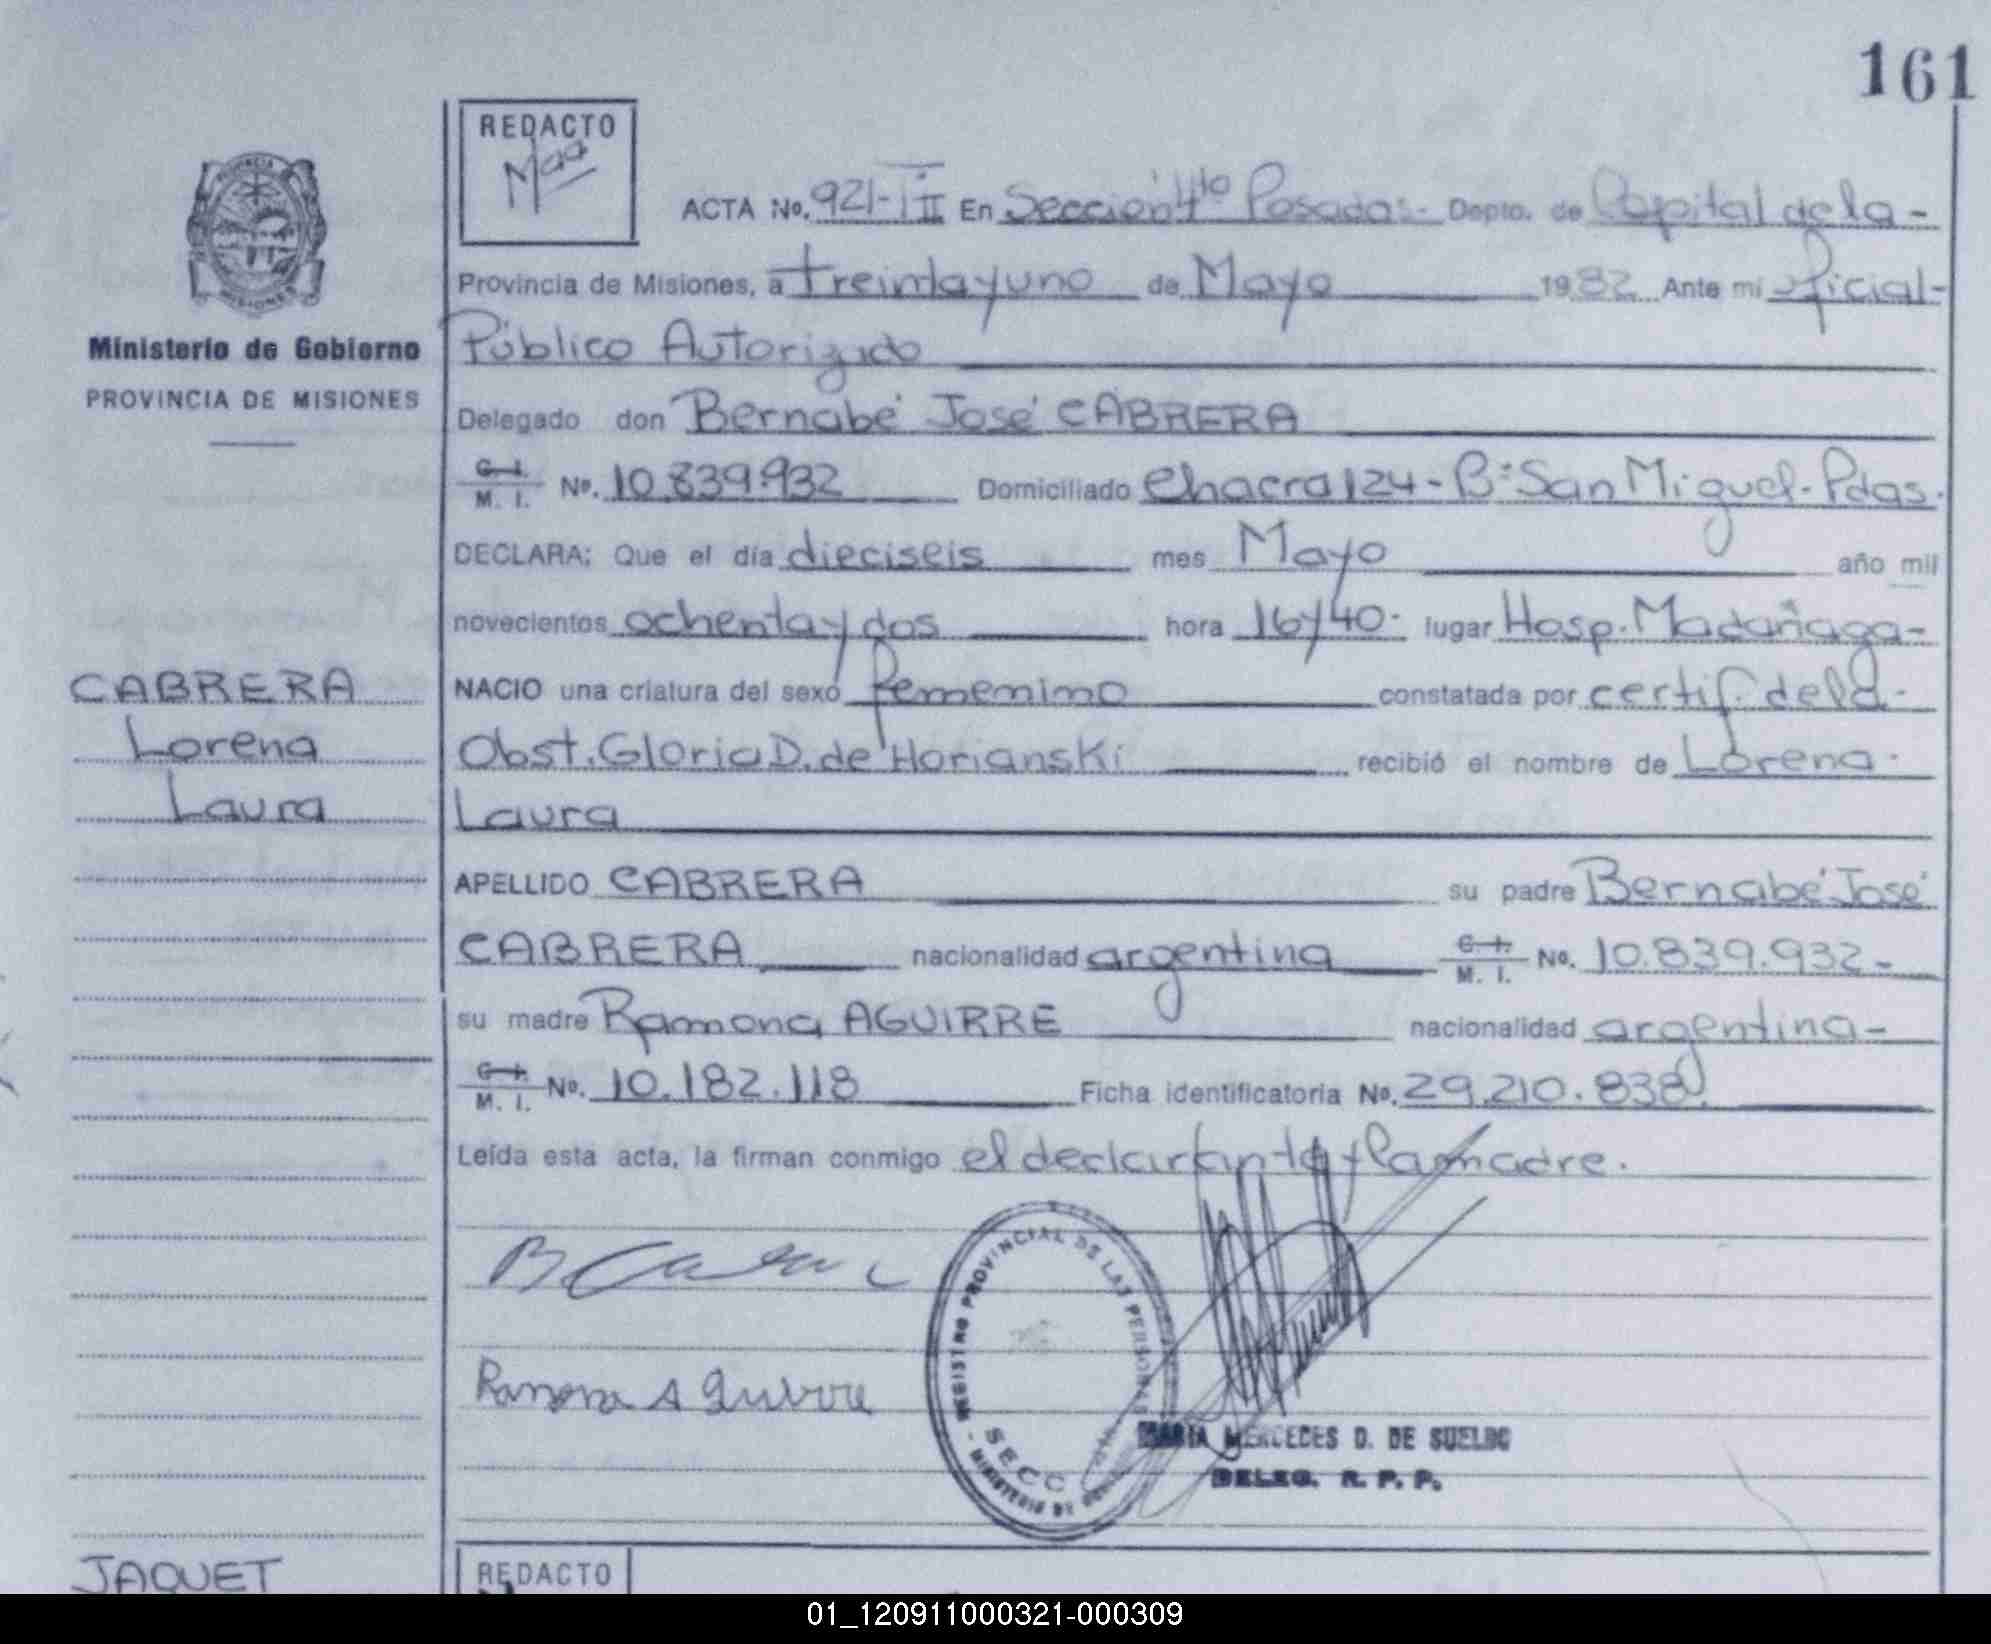 161
REDACTO
Maa
ACTA No. 921-TII En Sección 4to Posadas.- Depto. de Capital de la -
Provincia de Misiones, a treintayuno de Mayo 1982 Ante mi oficial-
Ministerio de Gobierno
PROVINCIA DE MISIONES
Público Autorizado
Delegado don Bernabé José CABRERA
C. I. / M. I. Nº. 10.839.932 Domiciliado Chacra 124 - Bº San Miguel - Pdas.
DECLARA; Que el día dieciseis mes Mayo año mil
novecientos ochenta y dos hora 16y40. lugar Hosp. Madariaga-
CABRERA
Lorena
Laura
NACIO una criatura del sexo femenino constatada por certif. de la -
Obst. Gloria D. de Horianski recibió el nombre de Lorena.
Laura
APELLIDO CABRERA su padre Bernabé José
CABRERA nacionalidad argentina C. I. / M. I. No. 10.839.932-
su madre Ramona AGUIRRE nacionalidad argentina -
C. I. / M. I. No. 10.182.118 Ficha identificatoria No. 29.210.838.
Leída esta acta, la firman conmigo el declarante y la madre.
B Cabrera
Ramona Aguirre
REGISTRO PROVINCIAL DE LAS PERSONAS
SECC
MINISTERIO DE
MARIA MERCEDES D. DE SUELDO
DELEG. R. P. P.
JAQUET
REDACTO
01_120911000321-000309